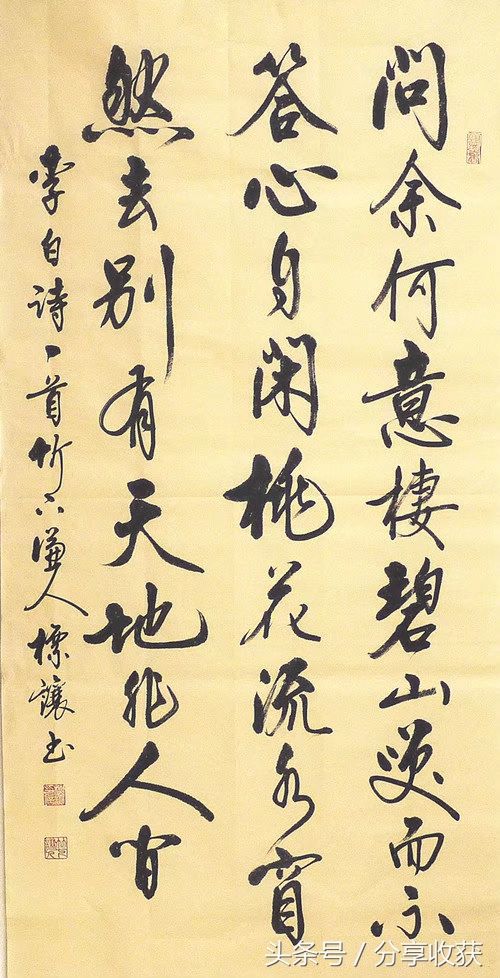 问余何意棲碧山笑而不
答心自闲桃花流水窅
然去别有天地非人间
李白诗一首竹下谦人標讓书
头条号 / 分享收获